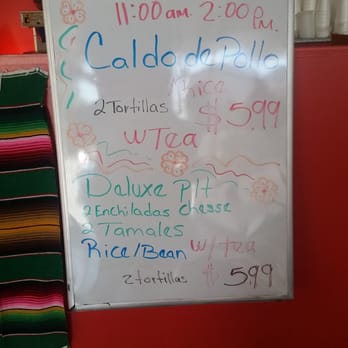 11:00 am. 2:00 P.M.
Caldo de Pollo
Rice
2 Tortillas $5.99
w Tea
Deluxe plt
2 Enchiladas Chesse
2 Tamales
Rice/Bean w/tea
2 tortillas $ 5.99